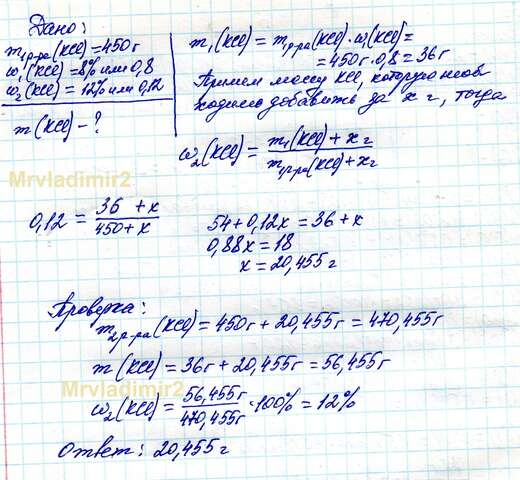 Дано:
m1р-ра(KCl)=450г
ω1(KCl)=8% или 0,8
ω2(KCl)=12% или 0,12
m(KCl)-?
m1(KCl)=m1р-ра(KCl)·ω1(KCl)=
=450г·0,8=36г
Примем массу KCl, которую необ
ходимо добавить за x г, тогда
ω2(KCl)=m1(KCl)+xг/m1р-ра(KCl)+xг
Mrvladimir2
0,12=36+x/450+x
54+0,12x=36+x
0,88x=18
x=20,455г
Проверка:
m2р-ра(KCl)=450г+20,455г=470,455г
m(KCl)=36г+20,455г=56,455г
Mrvladimir2
ω2(KCl)=56,455г/470,455г·100%=12%
Ответ: 20,455г